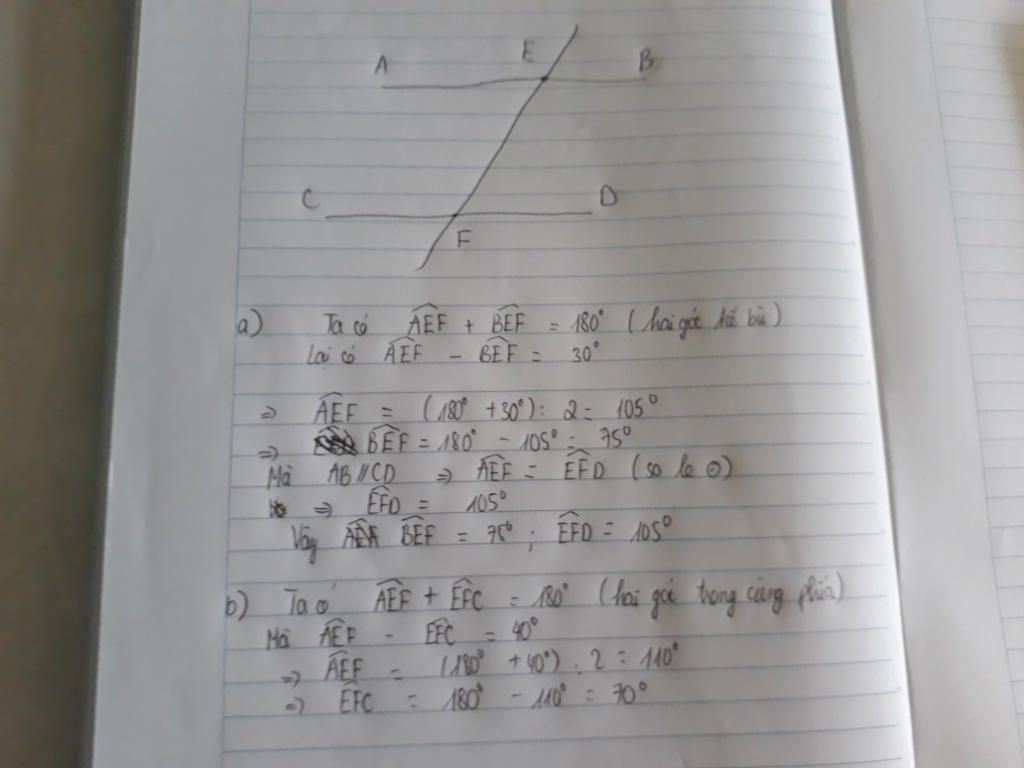 A E B
C D
F
a) Ta có \widehat{AEF} + \widehat{BEF} = 180° (hai góc kề bù)
Lại có \widehat{AEF} - \widehat{BEF} = 30°
⇒ \widehat{AEF} = (180° + 30°) : 2 = 105°
⇒ \widehat{BEF} = 180° - 105° = 75°
Mà AB // CD ⇒ \widehat{AEF} = \widehat{EFD} (so le ⊙)
⇒ \widehat{EFD} = 105°
Vậy \widehat{BEF} = 75° ; \widehat{EFD} = 105°
b) Ta có \widehat{AEF} + \widehat{EFC} = 180° (hai góc trong cùng phía)
Mà \widehat{AEF} - \widehat{EFC} = 40°
⇒ \widehat{AEF} = (180° + 40°) : 2 = 110°
⇒ \widehat{EFC} = 180° - 110° = 70°